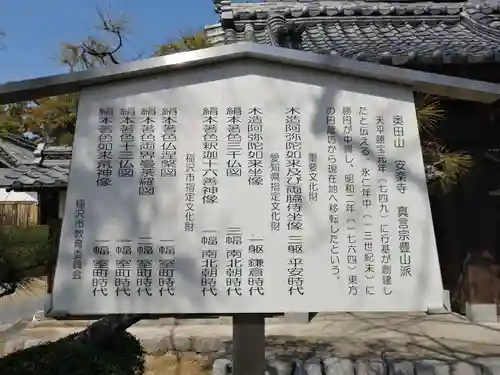 奥田山　安楽寺　真言宗豊山派
天平勝宝元年（七四九）に行基が創建し
たと伝える。永仁年中（一三世紀末）に
勝円が中興し、明和二年（一七六四）東方
の円蔵坊から現在地へ移転したという。
重要文化財
木造阿弥陀如来及び両脇侍坐像　一躯　平安時代
愛知県指定文化財
木造阿弥陀如来坐像　一躯　鎌倉時代
絹本著色三千仏図　三幅　南北朝時代
絹本著色釈迦十六善神像　一幅　南北朝時代
稲沢市指定文化財
絹本著色仏涅槃図　一幅　室町時代
絹本著色両界曼荼羅図　二幅　室町時代
絹本著色十三仏図　一幅　室町時代
絹本著色如来荒神像　一幅　室町時代
稲沢市教育委員会